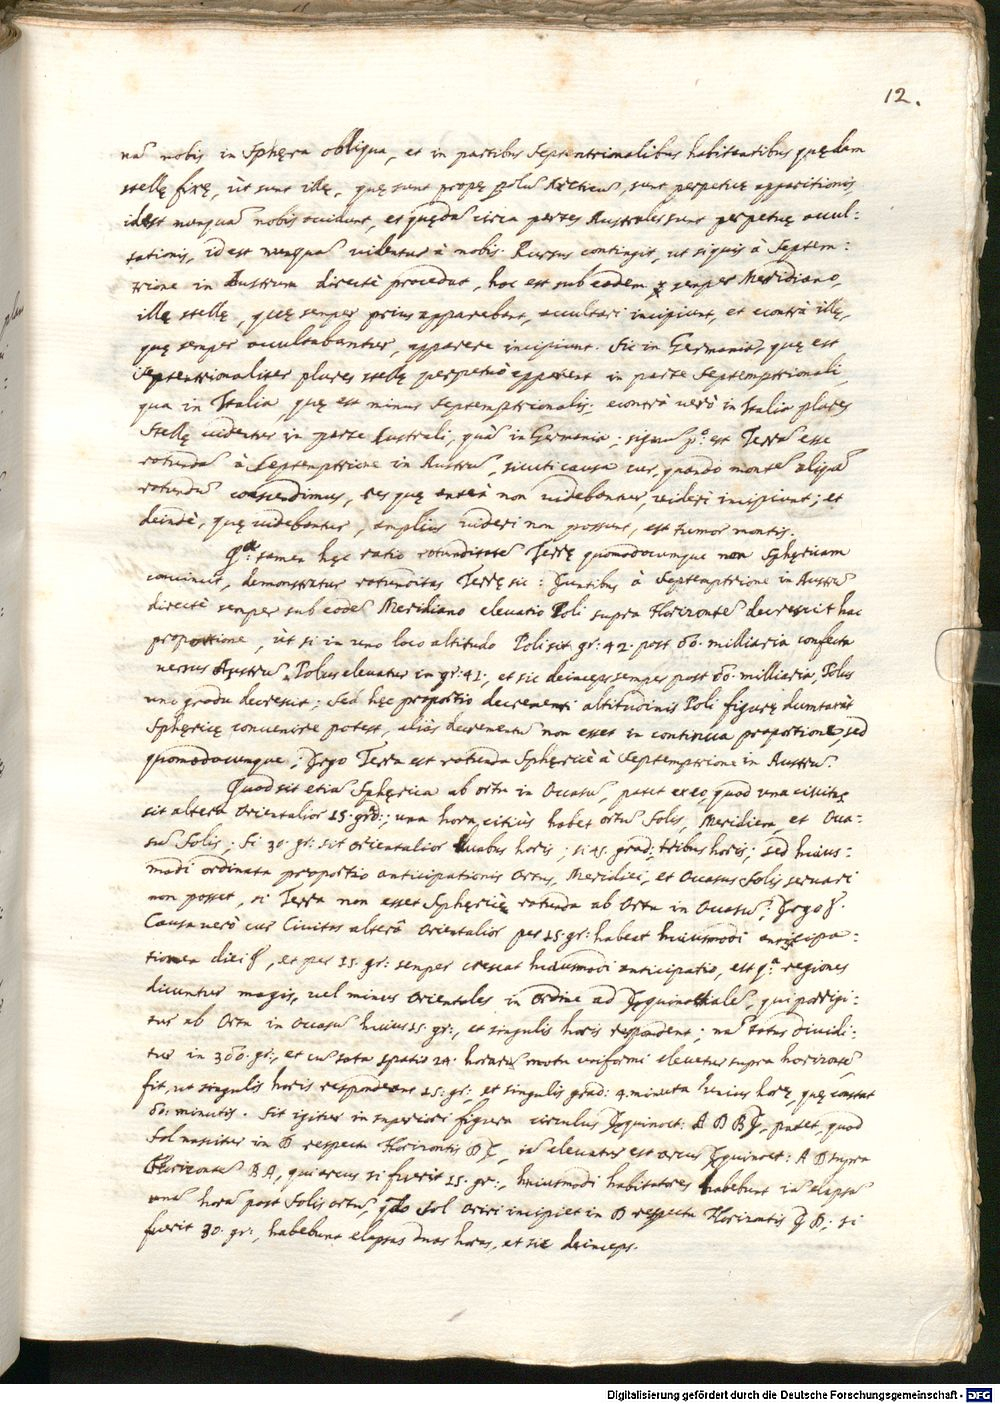 12.
na᷃ nobis in Sphęra obliqua, et in partibus Septentrionalibus habitantibus quędam
stellę fixę, ùt sunt illę, quę sunt propę polu᷃ Arcticu᷃, sunt perpetuę apparitionis,
idest nunqua᷃ nobis occidunt, et quęda᷃ circa partes Australes sunt perpetuę occul-
tationis, id est nunqua᷃ videntur à nobis. Rursus contingit, ut siquis à Septem:
trione in Austrum directè procedat, hoc est sub eodem semper Meridiano,
illę stellę, quę semper prius apparebant, occultari incipiunt, et econtrà illę,
quę semper occultabantur, apparere incipiunt. Sic in Germania, quę est
septentrionaliter plures stellę perpetuò apparent in parte Septemptrionali,
qua in Italia, quę est minus Septemptrionalis; econtrà verò in Italia plures
Stellę videntur in parte Australi, quà in Germania; signum p.º est Terra᷃ esse
rotunda᷃ à Septemptrione in Austru᷃, sicuti causa cur, quando monte᷃ aliqua᷃
rotundu᷃ conscendimus, res quę anteà non videbantur, videri incipiunt; et
deindè, quę videbantur, amplius videri non possunt, est tumor montis.
Q.ᵃ tamen hęc ratio rotunditate᷃ Terrę quomodocunque non Sphęricam
convincit, demonstratur rotunditas Terrę sic: Euntibus à Septemptrione in Austru᷃
directè semper sub eode᷃ Meridiano elevatio Poli supra Horizonte᷃ decrescit hac
proportione, ùt si in uno loco altitudo Poli sit gr: 42. post 60. milliaria confecta
versus Austru᷃, Polus elevatur in gr: 41., et sic deinceps semper post 60. milliaria, Polus
uno gradu decrescit; Sed hęc proportio decrementi altitudinis Poli figurę dumtaxàt
Sphęricę convenire potest, aliàs decrementu᷃ non esset in continua proportione, sed
quomodocunque; Ergo Terra est rotunda Sphęricè à Septemptrione in Austru᷃.
Quod sit etia᷃ Sphęrica ab ortu in Occasu᷃, patet ex eo, quod una civitas
sit altera Orientalior 15. grad:; una hora citiùs habet ortu᷃ Solis, Meridiem, et Occa-
su᷃ Solis; Si 30. gr: sit orientalior duabus horis; si 45. grad: tribus horis; sed huius-
modi ordinata proportio anticipationis Ortus, Meridiei, et Occasus Solis servari
non posset, si Terra non esset Sphęricè rotunda ab Ortu in Occasu᷃; Ergo &.
Causa verò cur Civitas alterâ Orientalior per 15. gr: habeat huiusmodi anticipa-
tionem diei &, et per 15. gr: semper crescat huiusmodi anticipatio, est q.ᵃ regiones
dicuntur magis, vel minus Orientales in ordine ad Ęquinoctiale᷃, qui porrigi-
tur ab Ortu in Occasu᷃ huius 15. gr:, et singulis horis respondent; na᷃ totus dividi-
tur in 360. gr:, et cu᷃ toto spatio 24. horaru᷃ motu uniformi elevetur supra horizonte᷃,
fit, ut singulis horis respondeant 15. gr:, et singulis grad: 4. minuta unius horę, quę constat
60. minutis. Sit igitur in superiori figura circulus Ęquinoct: A D B E, patet, quod
Sol nascitur in D respectu Horizontis D E, ia᷃ elevatus est arcus Ęquinoct: A D supra
Horizonte᷃ B A, qui arcus si fuerit 15. gr:, huiusmodi habitatores habebunt ia᷃ elapsa᷃
una᷃ hora᷃ post Solis ortu᷃, qdo Sol oriri incipiet in D respectu Horizontis E D; si
fuerit 30. gr:, habebunt elapsas duas horas, et sic deinceps.
Digitalisierung gefördert durch die Deutsche Forschungsgemeinschaft - DFG